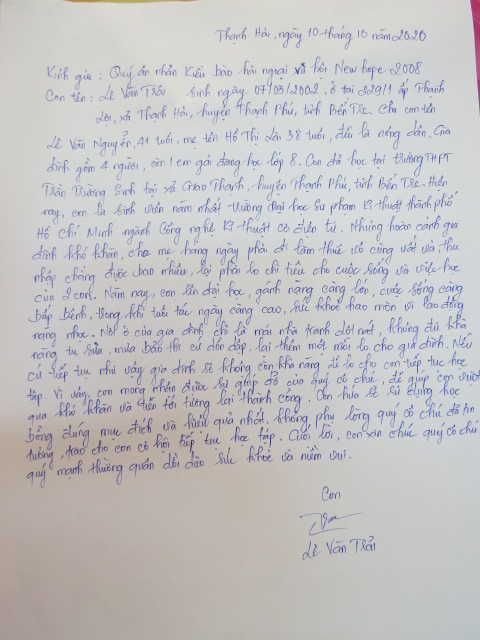 Thạnh Hải, ngày 10 tháng 10 năm 2020
Kính gửi : Quý ân nhân Kiều bào hải ngoại xã hội New hope 2008
Con tên : Lê Văn Trải sinh ngày 07/03/2002. ở tại 229/1 ấp Thạnh
Lợi, xã Thạnh Hải, huyện Thạnh Phú, tỉnh Bến Tre. Cha con tên
Lê Văn Nguyễn, 41 tuổi, mẹ tên Hồ Thị Lài 38 tuổi, đều là nông dân. Gia
đình gồm 4 người, còn 1 em gái đang học lớp 8. Con đã học tại trường THPT
Trần Trường Sinh tại xã Giao Thạnh, huyện Thạnh Phú, tỉnh Bến Tre. Hiện
nay, con là sinh viên năm nhất trường Đại học Sư phạm Kĩ thuật thành phố
Hồ Chí Minh ngành Công nghệ Kĩ thuật cơ điện tử. Nhưng hoàn cảnh gia
đình khó khăn, cha mẹ hàng ngày phải đi làm thuê vô cùng vất vả thu
nhập chẳng được bao nhiêu, lại phải lo chi tiêu cho cuộc sống và việc học
của 2 con. Năm nay, con lên đại học, gánh nặng càng lớn, cuộc sống càng
bấp bênh, trong khi tuổi tác ngày càng cao, sức khoẻ hao mòn vì lao động
nặng nhọc. Nơi ở của gia đình chỉ là mái nhà tranh dột nát, không đủ khả
năng tu sửa. mưa bão thì cứ dồn dập, lại thêm một mối lo cho gia đình. Nếu
cứ tiếp tục như vậy gia đình sẽ không còn khả năng để lo cho con tiếp tục học
tập. Vì vậy, con mong nhận được sự giúp đỡ của quý cô chú, để giúp con vượt
qua khó khăn và tiến tới tương lai thành công. Con hứa sẽ sử dụng học
bổng đúng mục đích và hiệu quả nhất, không phụ lòng quý cô chú đã tin
tưởng, trao cho con cơ hội tiếp tục học tập. Cuối lời, con xin chúc quý cô chú
quý mạnh thường quân dồi dào sức khoẻ và niềm vui.
Con
Lê Văn Trải